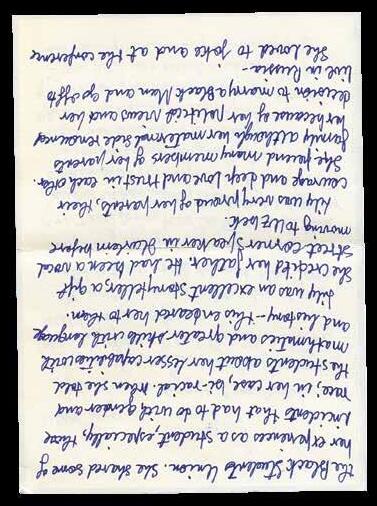 the Black Students Union. She shared some of
her experiences as a student, especially, those
incidents that had to do with gender and
race; in her case, bi-racial. When she told
the students about her lesser capabilities with
mathematics and greater skills with language
and history – this endeared her to them.
Lily was an excellent storyteller, a gift
she credits her father. He had been a vocal
Street Corner Speaker in Harlem before
moving to Uzbek.
Lily was very proud of her parents, their
courage and deep love and trust in each other.
She found many members of her parents
family although her maternal side renounced
her because of her political views and her
decision to marry a Black Man and go off to
live in Russia –
She loved to joke and at the conference